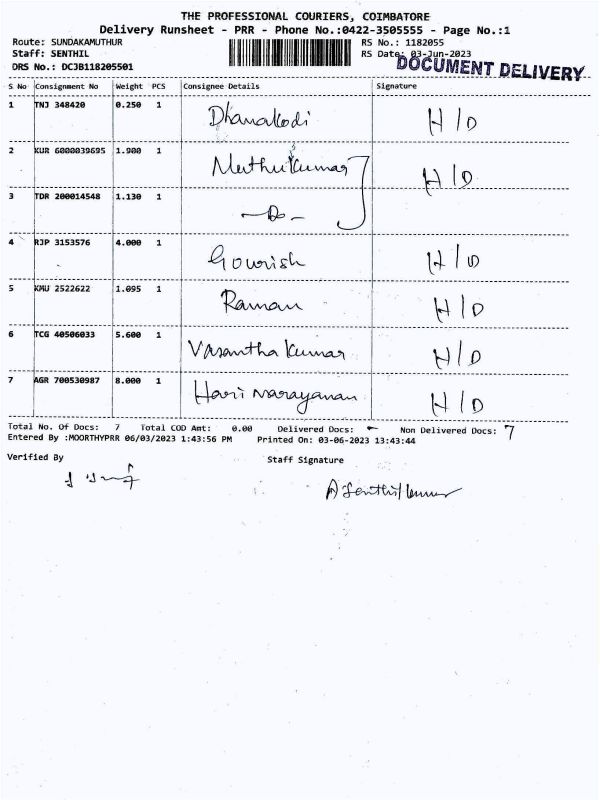 THE PROFESSIONAL COURIERS, COIMBATORE
Delivery Runsheet - PRR - Phone No.:0422-3505555 - Page No.:1
Route: SUNDAKAMUTHUR RS No.: 1182055
Staff: SENTHIL RS Date: 03-Jun-2023
DRS No.: DCJB118205501 DOCUMENT DELIVERY
S No Consignment No Weight PCS Consignee Details Signature
1 TNJ 348420 0.250 1 Dhanakodi H/D
2 KUR 6000039695 1.900 1 Muthukumar H/D
3 TDR 200014548 1.130 1 -Do-
4 RJP 3153576 4.000 1 Gowrish H/D
5 KMU 2522622 1.095 1 Raman H/D
6 TCG 40506033 5.600 1 Vasantha Kumar H/D
7 AGR 700530987 8.000 1 Hari Narayanan H/D
Total No. Of Docs: 7 Total COD Amt: 0.00 Delivered Docs: - Non Delivered Docs: 7
Entered By :MOORTHYPRR 06/03/2023 1:43:56 PM Printed On: 03-06-2023 13:43:44
Verified By Staff Signature
A Senthil Kumar